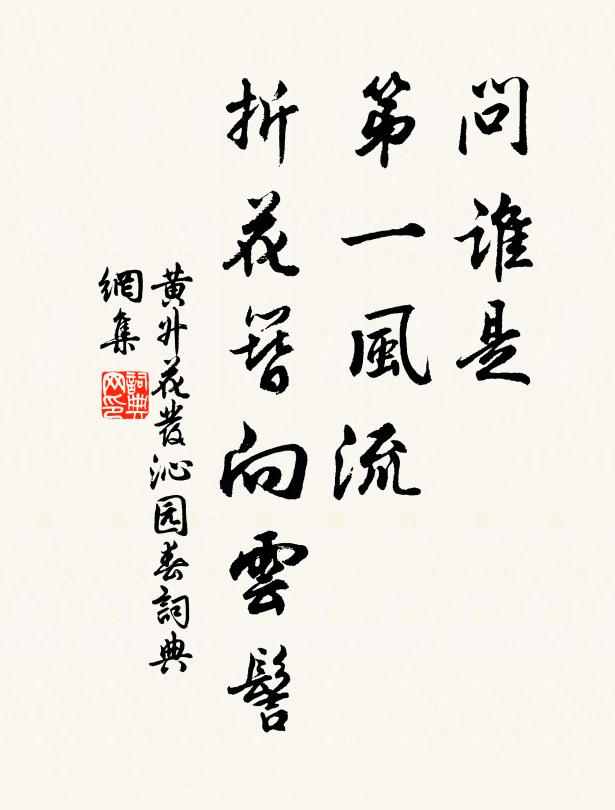 問誰是
第一風流
折花簪向雲髻
黄升花發沁园春詞典
網集
詞典
网印